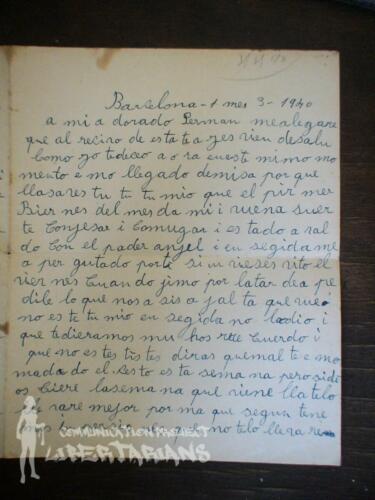 Barcelona - 1 mes 3 - 1940
a mi adorado German mealegare
que al reciro de esta tea yes vien desalu
como yo tediceo a o ra en este mimo mo
mento e mo llegado demisa por que
llasares tu tu tu mio que el pir mer
Bier nes del mes da mi i vuena suer
te Confesar i Comugar i es tado a ral
do Con el pader angel i en segida me
a per gutado por te si uvieses vito el
vier nes Cuando jimo por latar de a pe
dile lo que nos a sis a falta que
no es te tu mio en segida no ladio i
que tedieramos mu hos rece Cuerdo i
que no es tes tis tes diras que mal te e mo
madado el sesto es ta sema na pero side
os Ciere lasema na que viene lla telo
rare mejor por ma que segun tene
no telo llera re
COMMUNICATION PROJECT
LIBERTARIANS